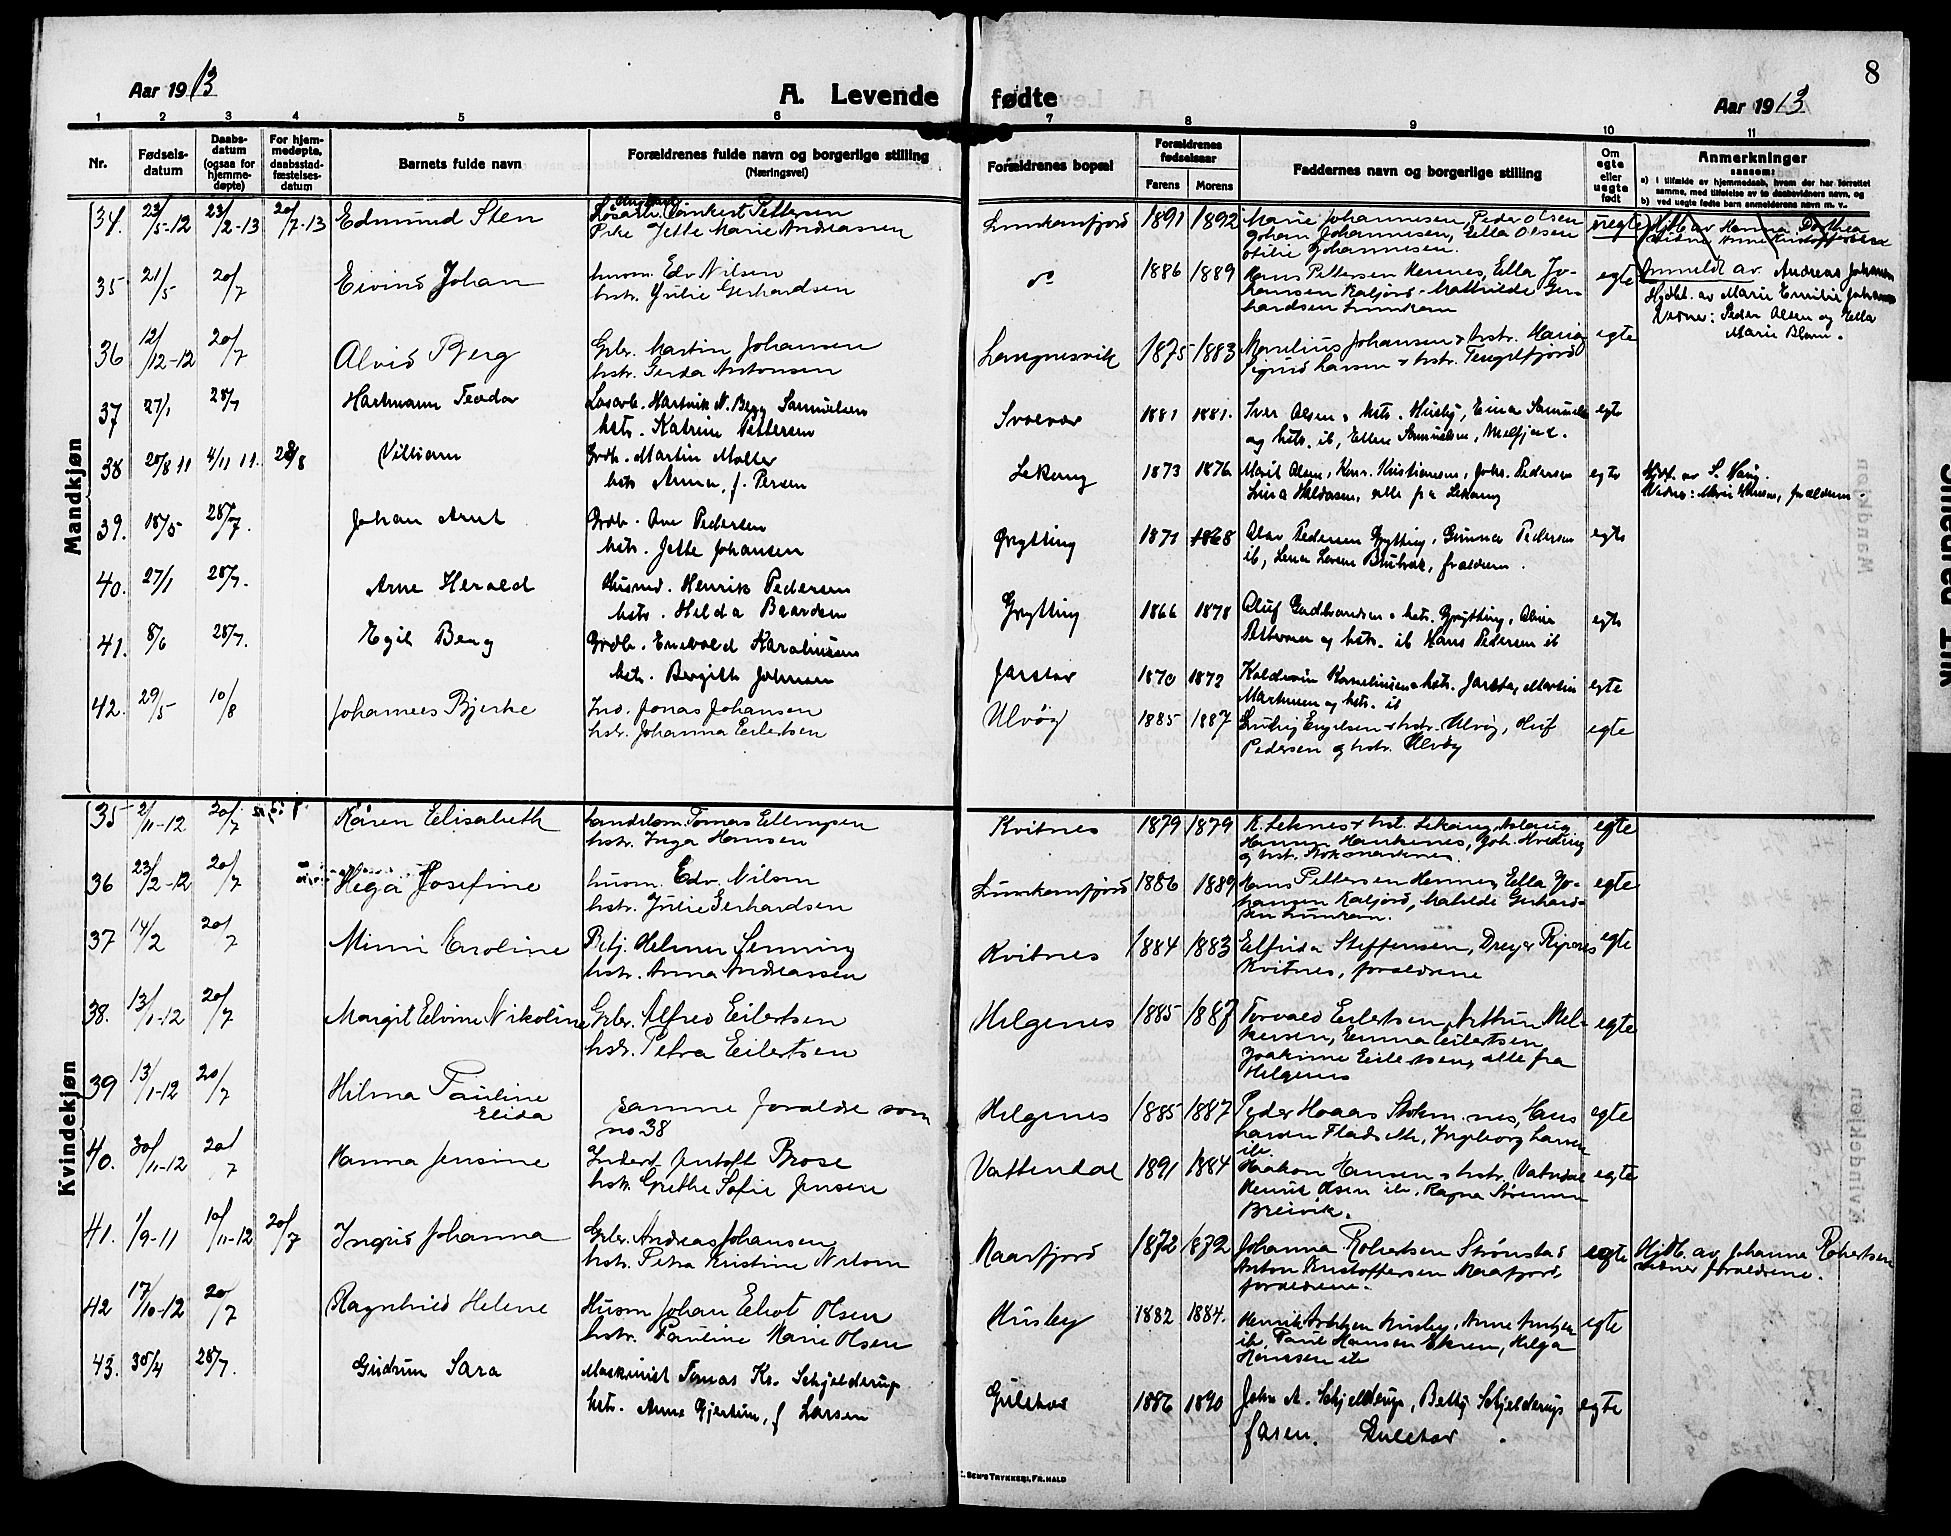 8
Aar 1913
A. Levende fødte
Aar 1913
1 2 3 4 5 6 7 8 9 10 11
Nr.
Fødsels-
datum
Daabs-
datum
(ogsaa for
hjemme-
døpte)
For hjem-
medøpte,
daabsstad-
fæstelses-
datum
Barnets fulde navn
Forældrenes fulde navn og borgerlige stilling
(Næringsvei)
Forældrenes bopæl
Forældrenes
fødselsaar
Farens Morens
Faddernes navn og borgerlige stilling
Om
egte
eller
uegte
født
Anmerkninger
saasom:
a) i tilfælde av hjemmedaab, hvem der har forrettet
samme, med tilføielse av to daabsvidners navn, og
b) ved uegte fødte barn anmelderens navn m. v.
Mandkjøn
34. 23/5-12 23/2-13 20/7-13 Edmund Sten
Løsarb. Pettersen
Pike Jette Marie Andreassen
Lunkansfjord 1891 1892
Marie Johannesen, Peder Olsen
Johan Johannesen, Ella Olsen
Otilie Johannesen.
uegte
Hjdb. av Hanna Dorthea
35 21/5 20/7 Eivind Johan
husm. Edv Nilsen
hstr. Julie Gerhardsen
do 1886 1889
Hans Pettersen Hennes, Ella Jo-
hansen Kaljord, Mathilde Ger-
hardsen Lunkan
egte
Anmeldt av Andreas Johansen
Hjdbt. av Marie Emilie Johans
Vidner: Peder Olsen og Ella
Marie Blom.
36 12/12-12 20/7 Alvid Berg
Gbr. Martin Johansen
hstr. Gerda Antonsen
Langnesvik 1875 1883
Marelius Johansen + hstr. Hanøy
Sigurd Larsen + hstr. Tengelfjord
egte
37 27/1 28/7 Hartmann Teodor
Løsarb. Hartvik N. Berg Samuelsen
hstr. Katrine Pettersen
Svolvær 1881 1881.
Iver Olsen + hstr. Husby, Einar Samuels
og hstr. ib, Ellen Samuelsen, Melfjord.
egte
38 20/8 11 4/11 11. 28/8 Villiam
Grdb. Martin Møller
hstr Anna, f. Persen
Lekang 1873 1876
Marit Olsen, Kenr. Kristiansen, Johs. Pedersen
Lina Haldosen, alle fra Lekang
egte
Hjdt. av S. Haug.
Vidner: , forældrene.
39. 18/5 28/7. Johan Arnt
Grdb. Ove Pedersen
hstr. Jette Johansen
Grytting 1871 1868
Olav Pedersen Grytting, Gunnar Pedersen
ib, Lena Lovise , forældrene.
egte
40. 27/1 28/7. Arne Herald
Husmd. Henrik Pedersen
hstr. Hilda Baardsen
Grytting 1866 1878
Oluf Gudbrandsen + hstr. Grytting, Oline
Pettersen og hstr. ib Hans Pedersen ib
egte
41. 8/6 28/7. Egil Berg
Grdb. Enevold Karoliussen
hstr. Bergitte Johnsen
Jarstad 1870 1872
Kaldervin Kornelissen + hstr. Jarstad, Martin
Martinsen og hstr. ib
egte
42. 29/5 10/8 Johannes Bjerke
Ind. Jonas Johansen
hstr. Johanna Eilertsen
Ulvøy 1885 1887
Ludvig Engelsen + hstr. Ulvøy, Oluf
Pedersen og hstr. Ulvøy
egte
Kvindekjøn
35 2/11-12 20/7 Karen Elisabeth
Landelsm. Tomas Ellingsen
hstr. Inga Hansen
Kvitnes 1879 1879
R. Leknes + hst. Lekang, Aslaug
Hansen Haukenes, Joh. Hveding
og hst. Stokmarknes.
egte
36 23/2-12 20/7 Helga Josefine
husm. Edv. Nilsen
hstr. Julie Gerhardsen
Lunkansfjord 1886 1889
Hans Pettersen Hennes, Ella Jo-
hansen Kaljord, Matilde Gerhard-
sen Lunkan.
egte
37 14/2 20/7 Mimi Caroline
Betj. Helmer Senning
hstr. Anna Andreassen
Kvitnes 1884 1883
Elfrida Steffensen, Dreyer Ripnes
Kvitnes, forældrene
egte
38. 13/1-12 20/7 Margit Elvine Nikoline
Gbr. Alfred Eilertsen
hstr. Petra Eilertsen
Helgenes 1885 1887
Torvald Eilertsen, Arthur Mel-
kersen, Emma Eilertsen,
Joakime Eilertsen, alle fra
Helgenes
egte
39 13/1-12 20/7 Hilma Pauline
Elida
samme foreldre som
no 38
Helgenes 1885 1887
Peder Hoaas Stokm.nes, Hans
Larsen Fladseth, Ingeborg Larsen
ib.
egte
40. 30/11-12 20/7 Hanna Jensine
Inderst Antoft Brose
hstr. Grethe Sofie Jensen
Vattendal 1891 1884
Haakon Hansen + hstr. Vatndal
Henrik Olsen ib, Ragna Sørensen
Breivik.
egte
41. 1/9-11 10/11-12 20/7 Ingrid Johanna
Gbr. Andreas Johansen
hstr. Petra Kristine Nilsen
Maarfjord 1872 1872
Johanna Robertsen Strønstad
Anton Kristoffersen Maarfjord
foreldrene.
egte
Hjdb. av Johanna Robertsen
vidner forældrene.
42 17/10-12 20/7 Ragnhild Helene
Husm Johan Eliot Olsen
hstr. Pauline Marie Olsen
Husby 1882 1884.
Henrik Antzen Husby, Anne Antzen
ib, Paul Hansen Ekren, Helga
Hanssen ib
egte
43. 30/4 28/7. Gudrun Sara
Maskinist Tomas Kr. Schjelderup
hstr. Anne Gjertine, f Larsen
Gulstad 1886 1890
John A. Schjelderup, Betty Schjelderup
faren. Gulstad.
egte
SEN'S TRYKKERI, FR.HALD